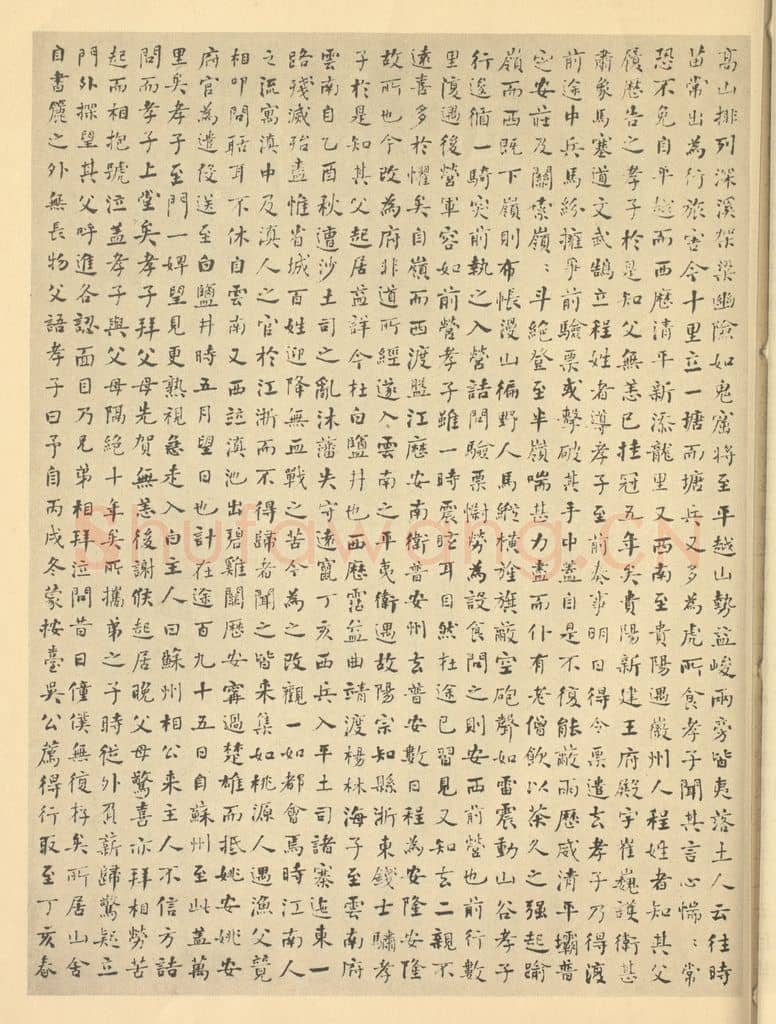 高山排列深溪架梁幽險如鬼窟將至平越山勢益峻兩旁皆夷落土人云往時
苗常出為行旅害今十里立一塘而塘兵又多為虎所食孝子聞其言心惴〻常
恐不免自平越而西歷清平新添龍里又西南至貴陽遇徽州人程姓者知其父
蹟歷告之孝子於是知父無恙已挂冠五年矣貴陽新建王府殿宇崔巍護衛甚
肅象馬塞道文武鵠立程姓者導孝子至前奏事明日得令票遣去孝子乃得渡
前途中兵馬紛擁爭前驗票或擊破其手中蓋自是不復能蔽雨歷威清平壩普
定安莊及關索嶺〻斗絕登至半嶺喘甚力盡而仆有老僧飲以茶久之强起踰
嶺而西既下嶺則布帳漫山徧野人馬縱橫旌旗蔽空砲聲如雷震動山谷孝子
行逡循一騎突前執之入營詰問驗票慰勞為設食問之則安西前營也前行數
里復遇後營軍容如前營孝子雖一時震眩耳目然在途已習見又知去二親不
遠喜多於懼矣自嶺而西渡盤江歷安南衛普安州去普安數日程為安隆安隆
故所也今改為府非道所經遂入雲南之平夷衛遇故陽宗知縣浙東錢士驌孝
子於是知其父起居益詳今在白鹽井也西歷霑益曲靖渡楊林海子至雲南府
雲南自乙酉秋遭沙土司之亂沐藩失守遠竄丁亥西兵入平土司諸寨迤東一
路殘滅殆盡惟省城百姓迎降無血戰之苦今為之改觀一如都會焉時江南人
之流寓滇中及滇人之官於江浙而不得歸者聞之皆来集如桃源人遇漁父競
相叩問聒耳不休自雲南又西涖滇池出碧雞關歷安寧過楚雄而抵姚安姚安
府官為遣役送至白鹽井時五月望日也計在途百九十五日自蘇州至此蓋萬
里矣孝子至門一婢望見更熟視急走入白主人曰蘇州相公来主人不信方詰
問而孝子上堂矣孝子拜父母先賀無恙後謝候起居晚父母驚喜亦拜相勞苦
起而相抱號泣蓋孝子與父母隔絕十年矣所攜弟之子時從外負薪歸驚疑立
門外探望其父呼進各認面目乃兄弟相拜泣問昔日僮僕無復存矣所居山舍
自書簏之外無長物父語孝子曰予自丙戌冬蒙按臺吳公薦得行取至丁亥春